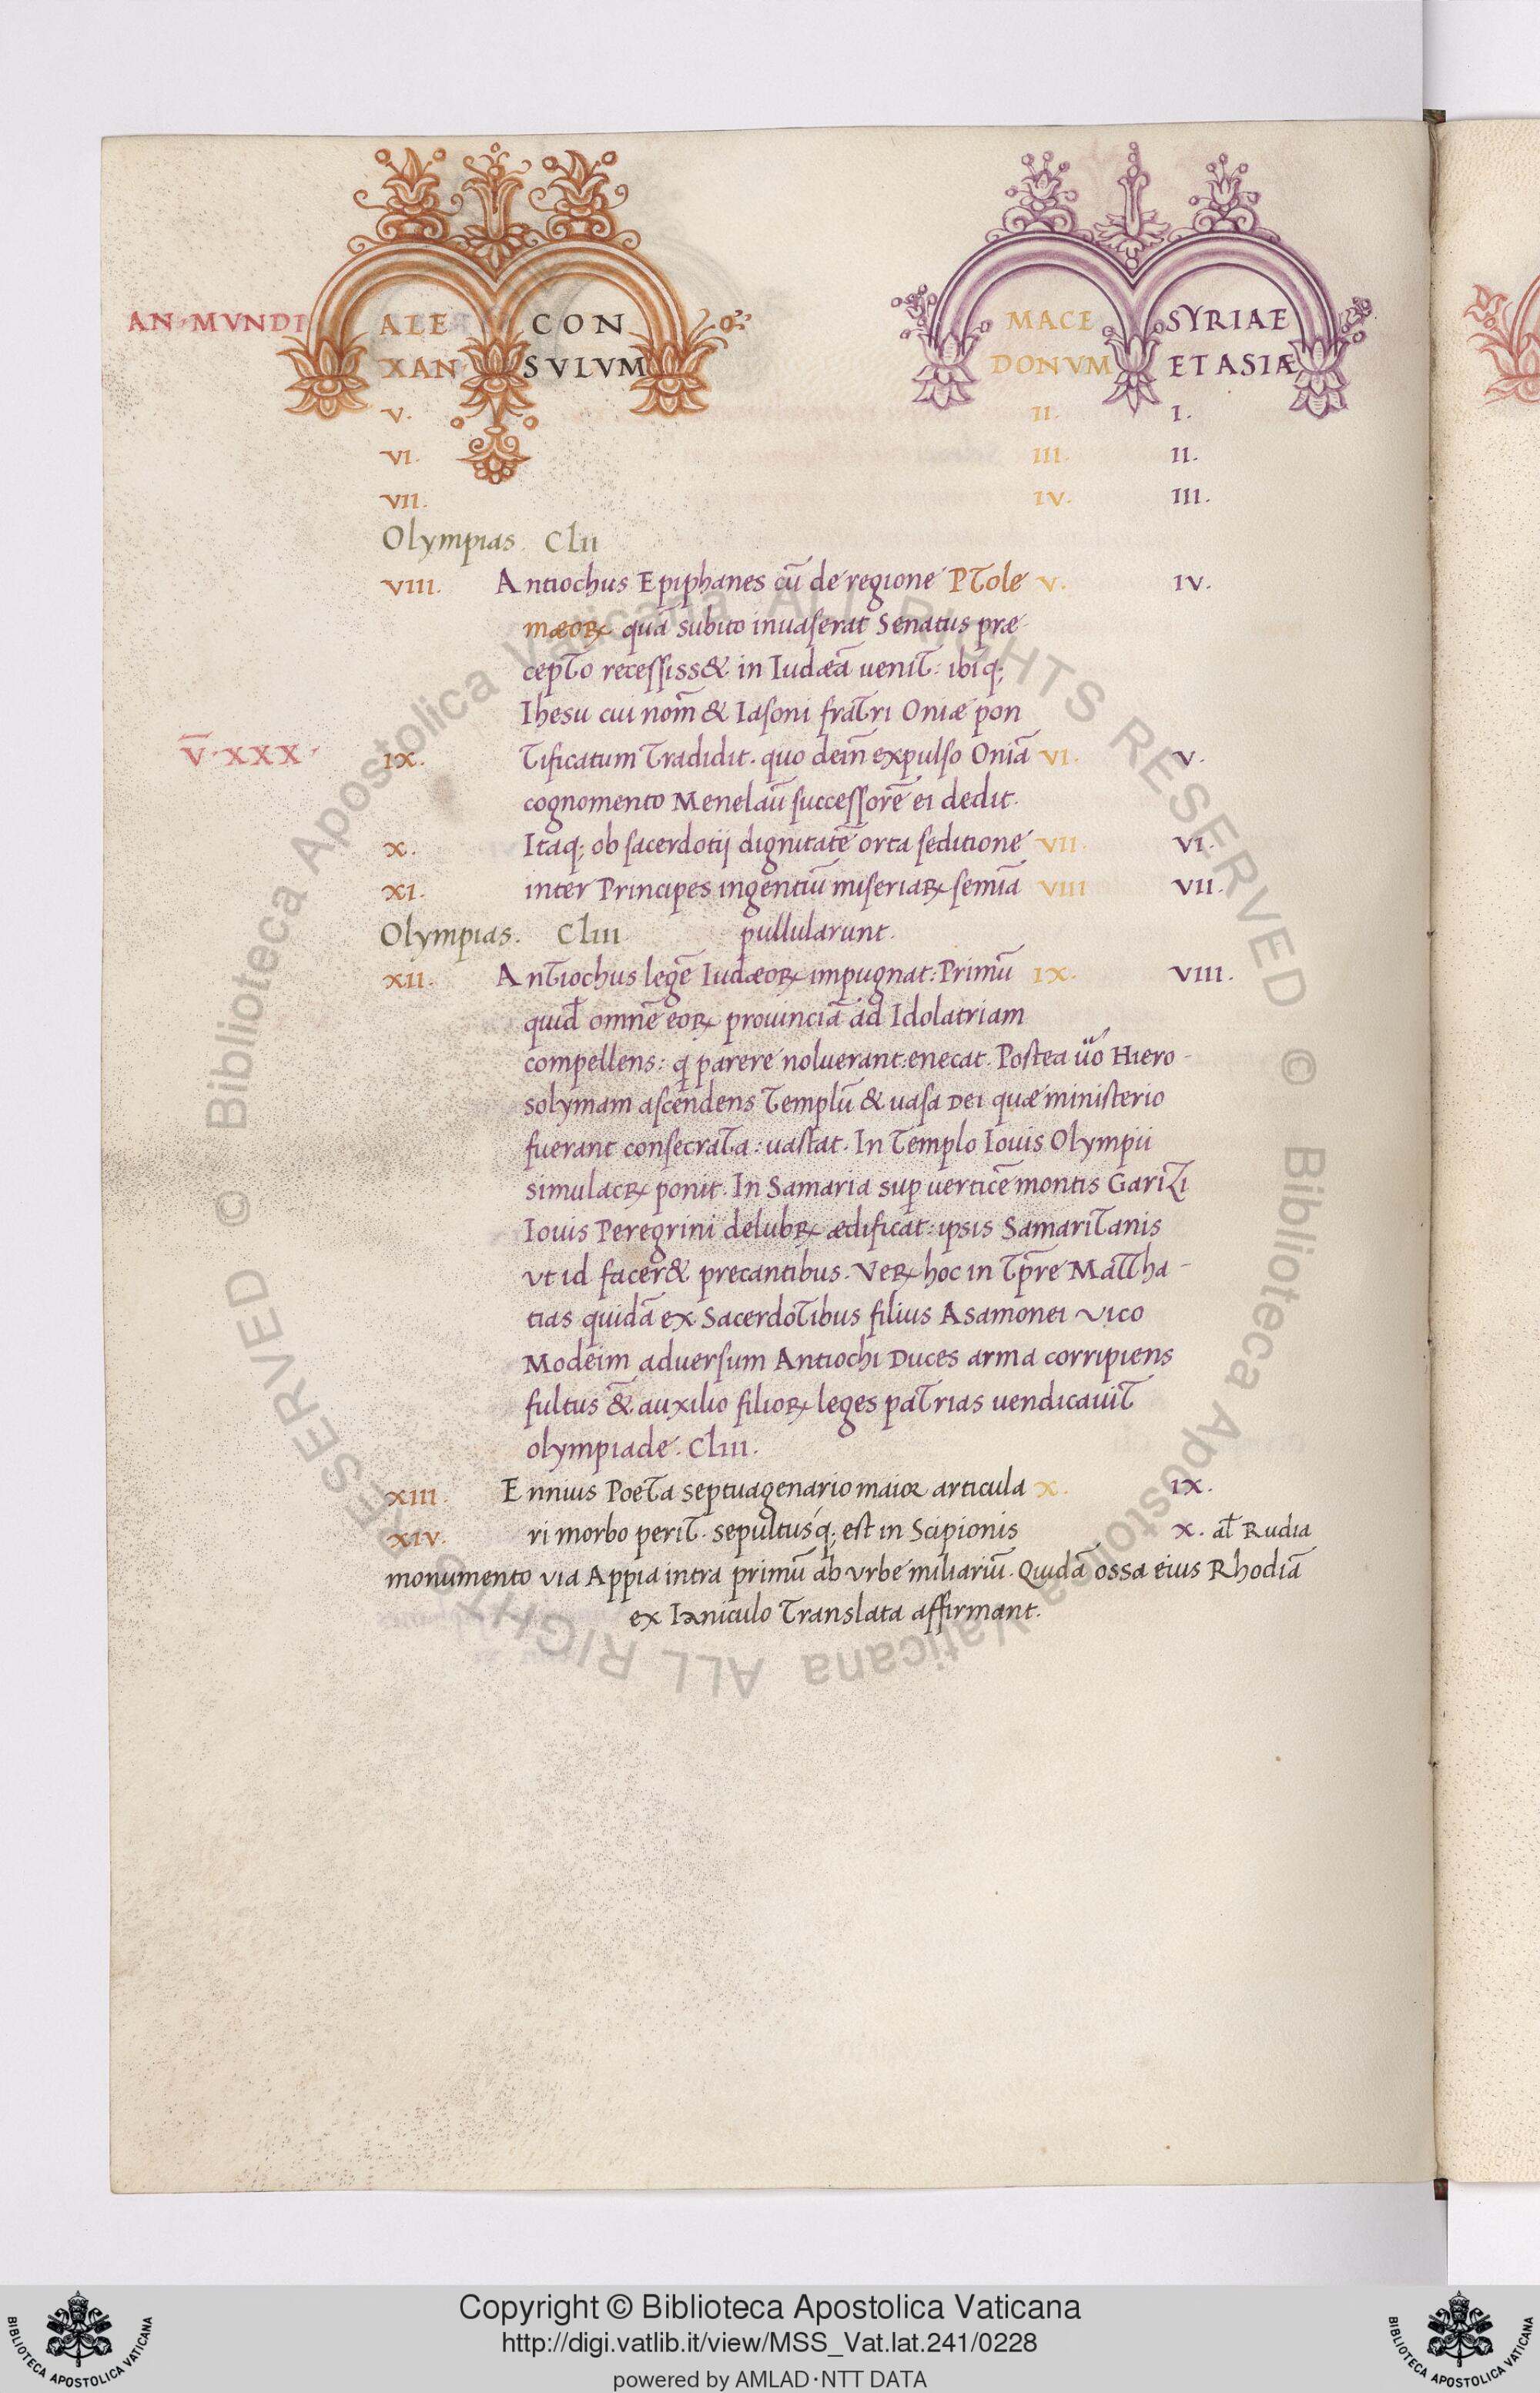 AN·MVNDI ALE CON MACE SYRIAE
XAN SVLVM DONVM ET ASIÆ
V. II. I.
VI. III. II.
VII. IV. III.
Olympias. Clii
VIII. Antiochus Epiphanes cū de regione PTole V. IV.
mæoꝝ quā subito inuaserat Senatus præ
cepto recessiss& in Iudæā uenit: ibiq;
Ihesu cui nom̄ & Iasoni fratri Oniæ pon
V̄·XXX· IX. tificatum tradidit. quo dein̄ expulso Oniā VI. V.
cognomento Menelaū successorē ei dedit.
X. Itaq; ob sacerdotij dignitatē orta seditione VII. VI.
XI. inter Principes ingentiū miseriaꝝ semīa VIII VII.
Olympias. Cliii pullularunt.
XII. Antiochus legē Iudæoꝝ impugnat: Primū IX. VIII.
quid̄ omnē eoꝝ prouinciā ad Idolatriam
compellens: q parere noluerant: enecat. Postea ūo Hiero-
solymam ascendens Templū & uasa Dei quæ ministerio
fuerant consecrata: uastat. In Templo Iouis Olympii
simulacꝝ ponit. In Samaria sup uerticē montis Garizi
Iouis Peregrini delubꝝ ædificat: ipsis Samaritanis
vt id facer& precantibus. Veꝝ hoc in tp̄re Mattha-
tias quidā ex Sacerdotibus filius Asamonei vico
Modeim aduersum Antiochi Duces arma corripiens
fultus &̄ auxilio filioꝝ leges patrias uendicauit
olympiade. Cliii.
XIII. Ennius Poeta septuagenario maior articula X. IX.
XIV. ri morbo perit. sepultusq; est in Scipionis X. al̄ Rudia
monumento via Appia intra primū ab vrbe miliariū. Quidā ossa eius Rhodiā
ex Ianiculo translata affirmant.
© Biblioteca Apostolica Vaticana ALL RIGHTS RESERVED © Biblioteca Apostolica Vaticana ALL RIGHTS RESERVED
Copyright © Biblioteca Apostolica Vaticana
http://digi.vatlib.it/view/MSS_Vat.lat.241/0228
powered by AMLAD·NTT DATA
BIBLIOTECA APOSTOLICA VATICANA
BIBLIOTECA APOSTOLICA VATICANA